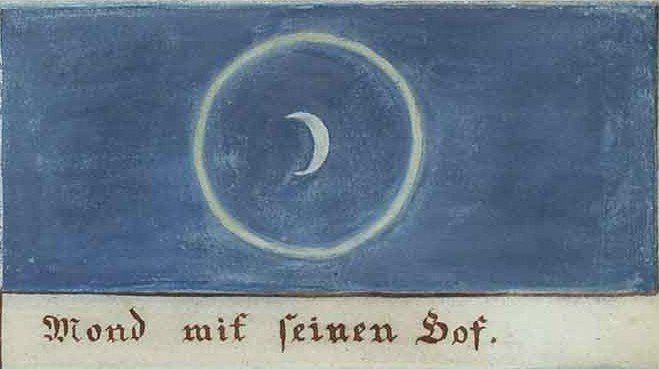 Mond mit ſeinen Hof.